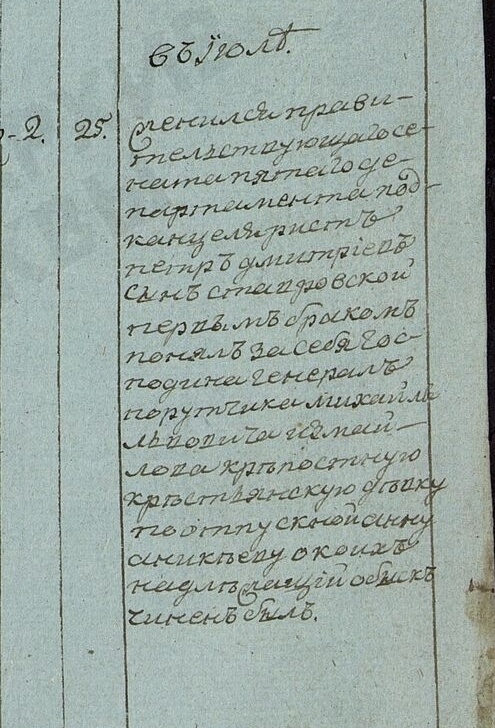 въ Їюлѣ.
2. 25. женился прави-
тельствующаго се-
ната пятаго де-
партамента под-
канцеляристъ
петръ дмитріевъ
сынъ ставровской
первымъ бракомъ
понялъ за себя гос-
подина генералъ
порутчика михайлы
львовича измай-
лова крѣпостную
крѣстьянскую дѣвку
по отпускной анну
аникѣеву о коихъ
надлѣжащій обыскъ
чиненъ былъ.